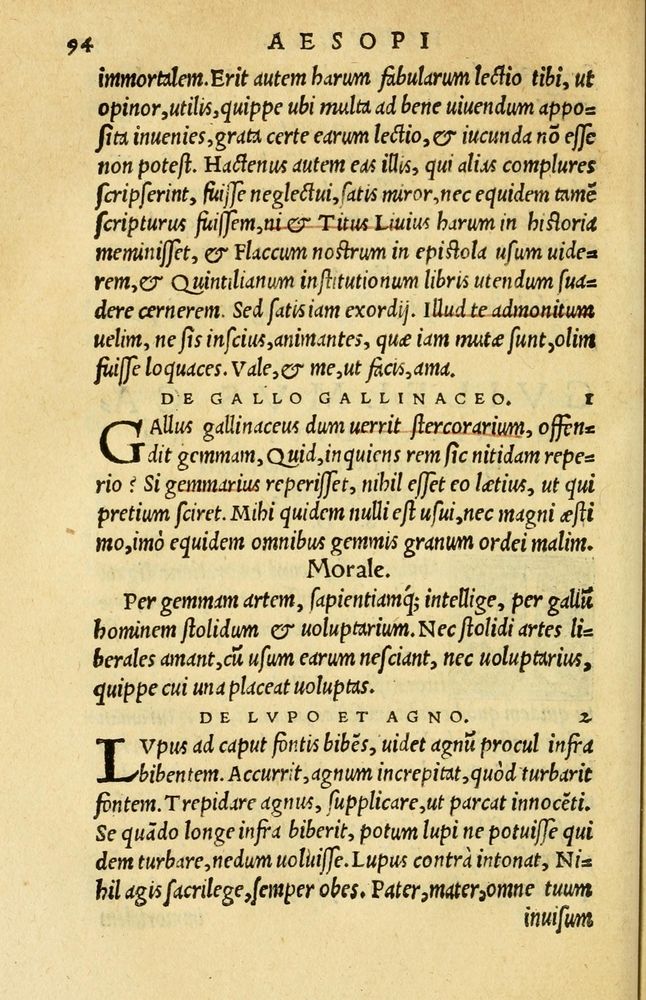 94 AESOPI
immortalem. Erit autem harum fabularum lectio tibi, ut
opinor, utilis, quippe ubi multa ad bene uiuendum appo=
ſita inuenies, grata certe earum lectio, & iucunda nõ eſſe
non poteſt. Hactenus autem eas illis, qui alias complures
ſcripſerint, fuiſſe neglectui, ſatis miror, nec equidem tamẽ
ſcripturus fuiſſem, ni & Titus Liuius harum in hiſtoria
meminiſſet, & Flaccum noſtrum in epiſtola uſum uide=
rem, & Quintilianum inſtitutionum libris utendum ſua=
dere cernerem. Sed ſatis iam exordij. Illud te admonitum
uelim, ne ſis inſcius, animantes, quæ iam mutæ ſunt, olim
fuiſſe loquaces. Vale, & me, ut facis, ama.
DE GALLO GALLINACEO. 1
GAllus gallinaceus dum uerrit ſtercorarium, offen=
dit gemmam, Quid, inquiens rem ſic nitidam repe=
rio? Si gemmarius reperiſſet, nihil eſſet eo lætius, ut qui
pretium ſciret. Mihi quidem nulli eſt uſui, nec magni æſti
mo, imò equidem omnibus gemmis granum ordei malim.
Morale.
Per gemmam artem, ſapientiamq́; intellige, per gallũ
hominem ſtolidum & uoluptarium. Nec ſtolidi artes li=
berales amant, cũ uſum earum neſciant, nec uoluptarius,
quippe cui una placeat uoluptas.
DE LVPO ET AGNO. 2
LVpus ad caput fontis bibẽs, uidet agnũ procul infra
bibentem. Accurrit, agnum increpitat, quòd turbarit
fontem. Trepidare agnus, ſupplicare, ut parcat innocẽti.
Se quãdo longe infra biberit, potum lupi ne potuiſſe qui
dem turbare, nedum uoluiſſe. Lupus contrà intonat, Ni=
hil agis ſacrilege, ſemper obes. Pater, mater, omne tuum
inuiſum